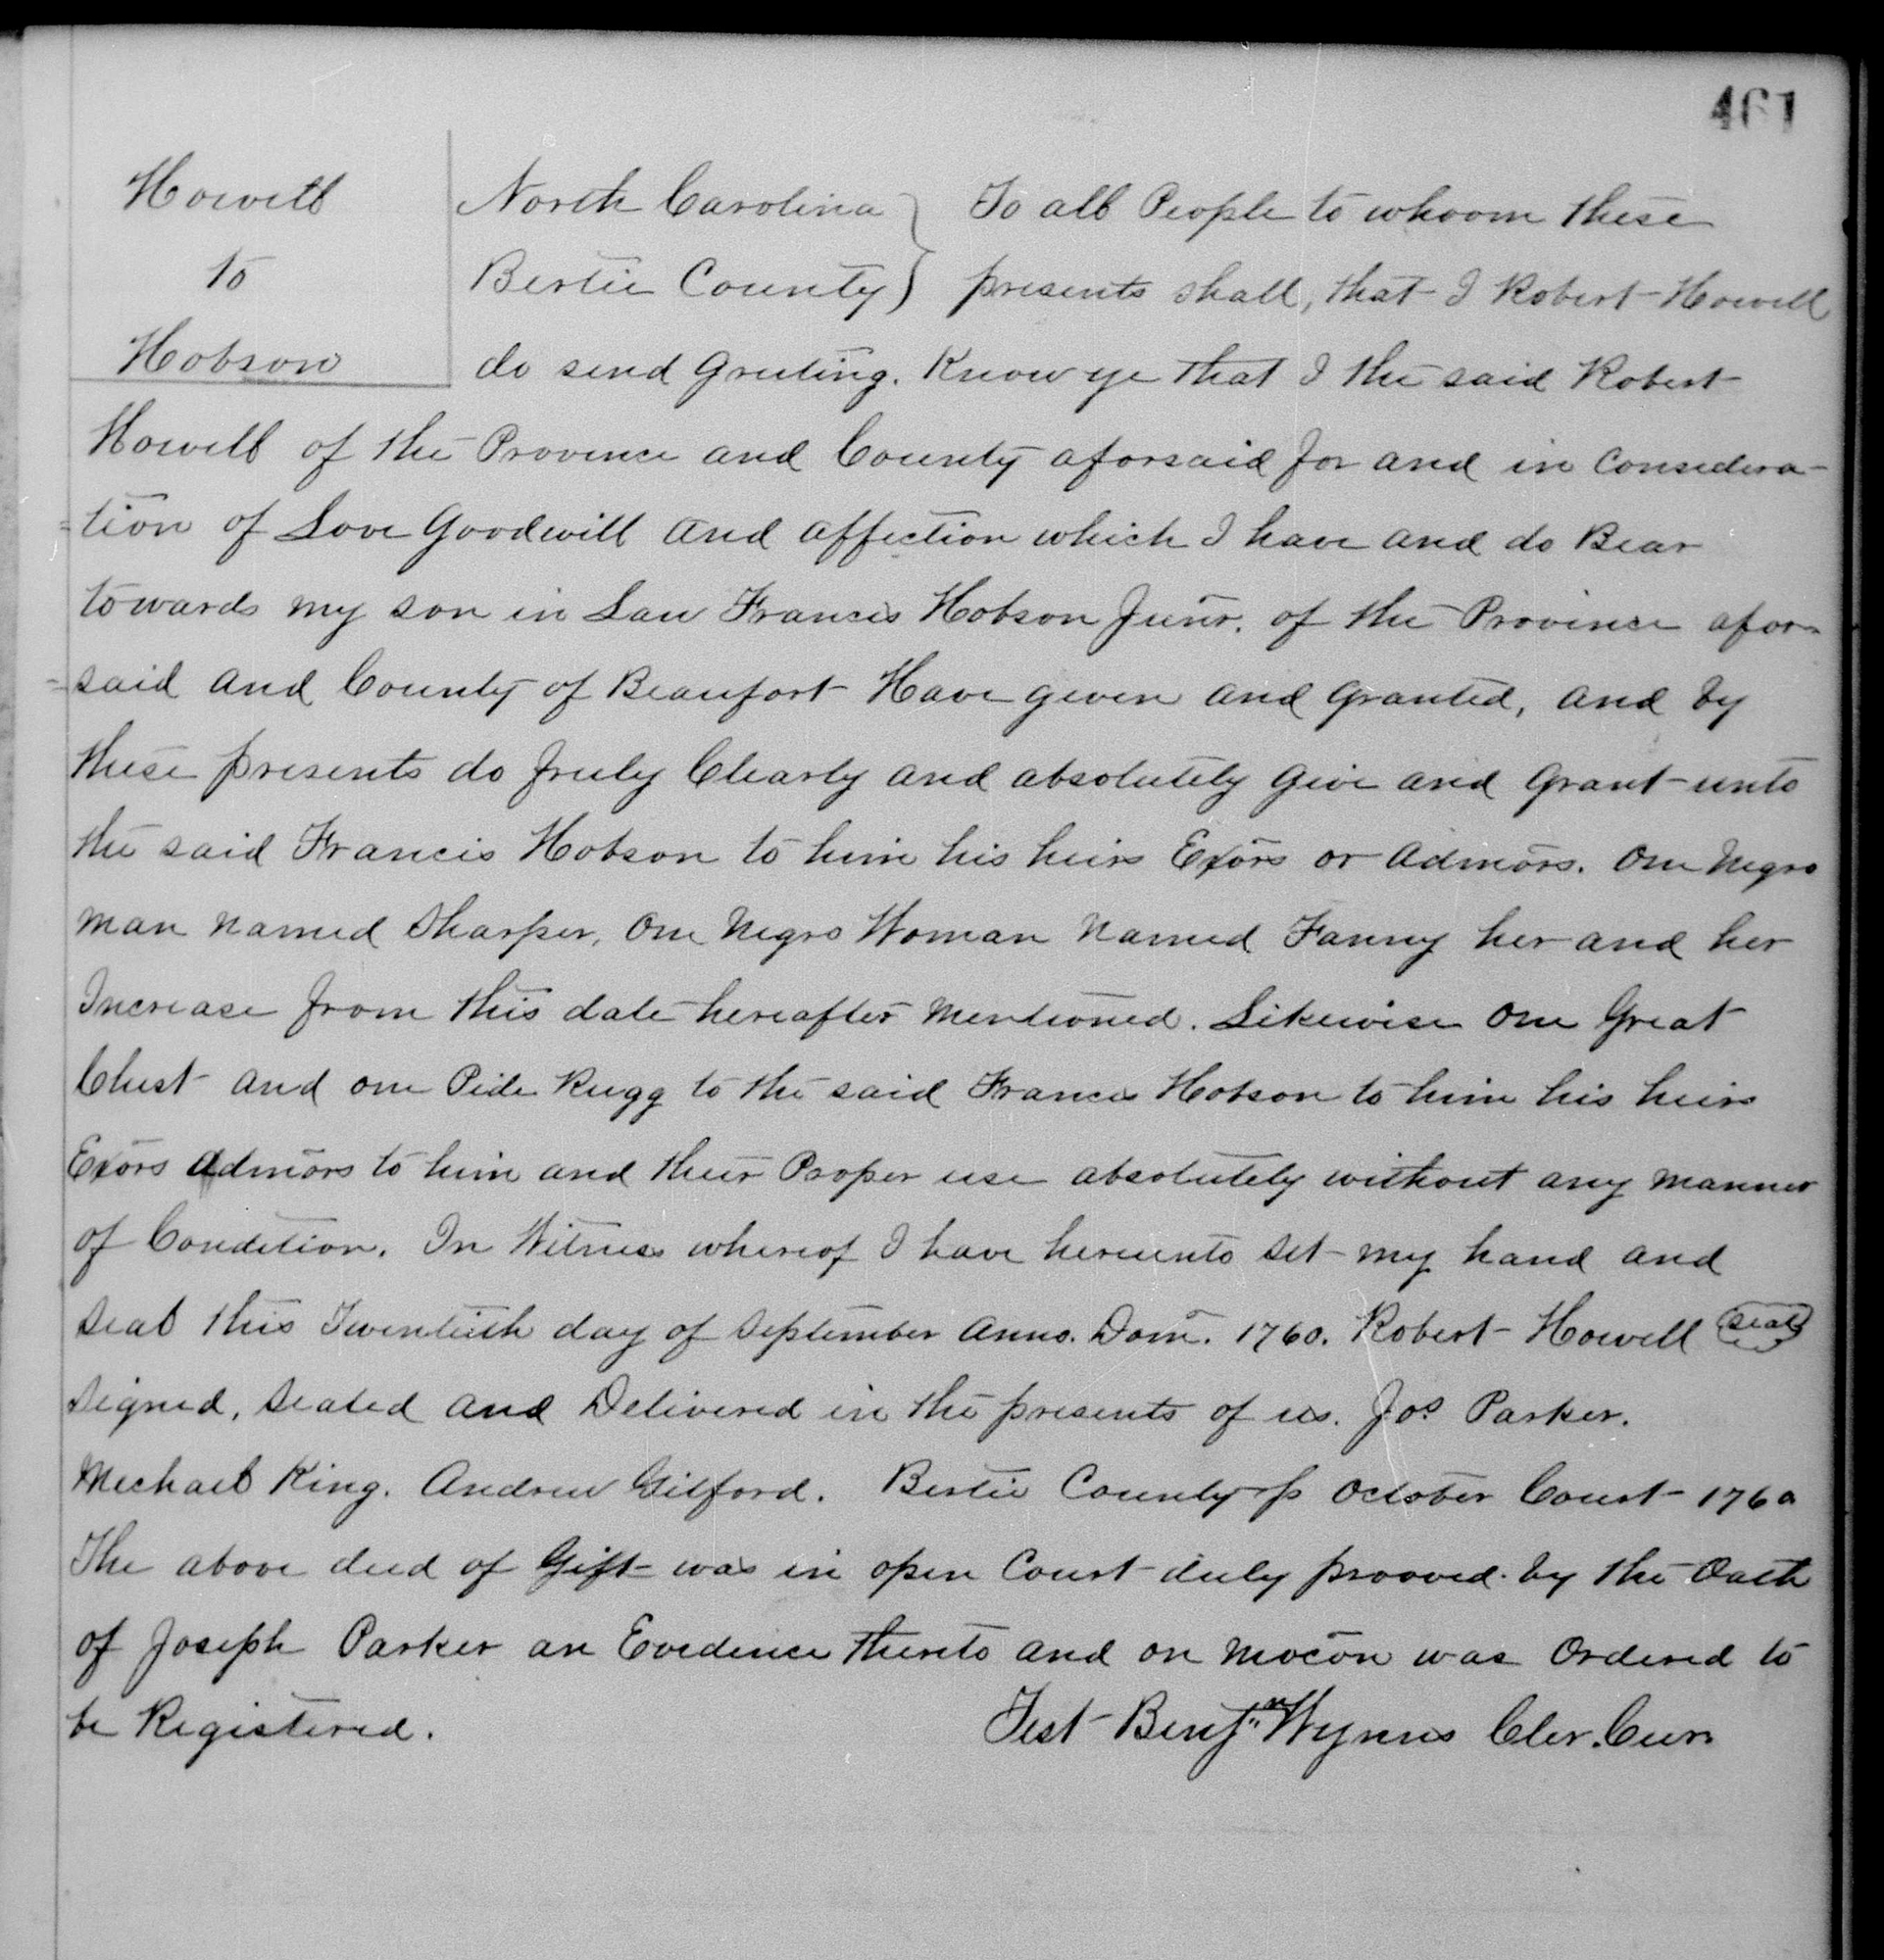 461
Howell
to
Hobson
North Carolina } To all People to whoom these
Bertie County } presents shall, that I Robert Howell
do send Greeting. Know ye that I the said Robert
Howell of the Provence and County aforsaid for and in Considera-
=tion of Love Goodwill and affection which I have and do Bear
towards my son in Law Francis Hobson Junr. of the Province afor-
=said and County of Beaufort Have given and granted, and by
these presents do fruly Clearly and absolutely give and grant unto
the said Francis Hobson to him his heirs Exors or Admors. One Negro
man named Sharper, One Negro Woman Named Fanny her and her
Increase from this date hereafter mentioned. Likewise One Great
Chest and one Pide Rugg to the said Francis Hobson to him his heirs
Exors Admors to him and their Proper use absolutely without any manner
of Condition. In Witness whereof I have hereunto set my hand and
seal this Twentieth day of September Anno. Dom. 1760. Robert Howell (seal)
Signed, sealed and Delivered in the presents of us. Jos Parker.
Michael King. Andrew Gilford. Bertie County p October Court 1760
The above deed of Gift was in open Court duly prooved by the Oath
of Joseph Parker an Evidence thereto and on Mocon was Ordered to
be Registered. Test Benjn Wynns Cler. Cur.